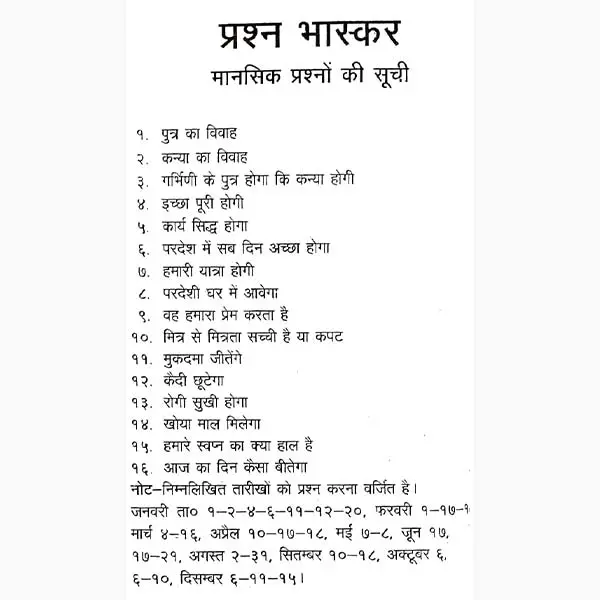 प्रश्न भास्कर
मानसिक प्रश्नों की सूची
१. पुत्र का विवाह
२. कन्या का विवाह
३. गर्भिणी के पुत्र होगा कि कन्या होगी
४. इच्छा पूरी होगी
५. कार्य सिद्ध होगा
६. परदेश में सब दिन अच्छा होगा
७. हमारी यात्रा होगी
८. परदेशी घर में आवेगा
९. वह हमारा प्रेम करता है
१०. मित्र से मित्रता सच्ची है या कपट
११. मुकदमा जीतेंगे
१२. कैदी छूटेगा
१३. रोगी सुखी होगा
१४. खोया माल मिलेगा
१५. हमारे स्वप्न का क्या हाल है
१६. आज का दिन कैसा बीतेगा
नोट-निम्नलिखित तारीखों को प्रश्न करना वर्जित है।
जनवरी ता० १-२-४-६-११-१२-२०, फरवरी १-१७-
मार्च ४-१६, अप्रैल १०-१७-१८, मई ७-८, जून १७,
१७-२१, अगस्त २-३१, सितम्बर १०-१८, अक्टूबर ६,
६-१०, दिसम्बर ६-११-१५।